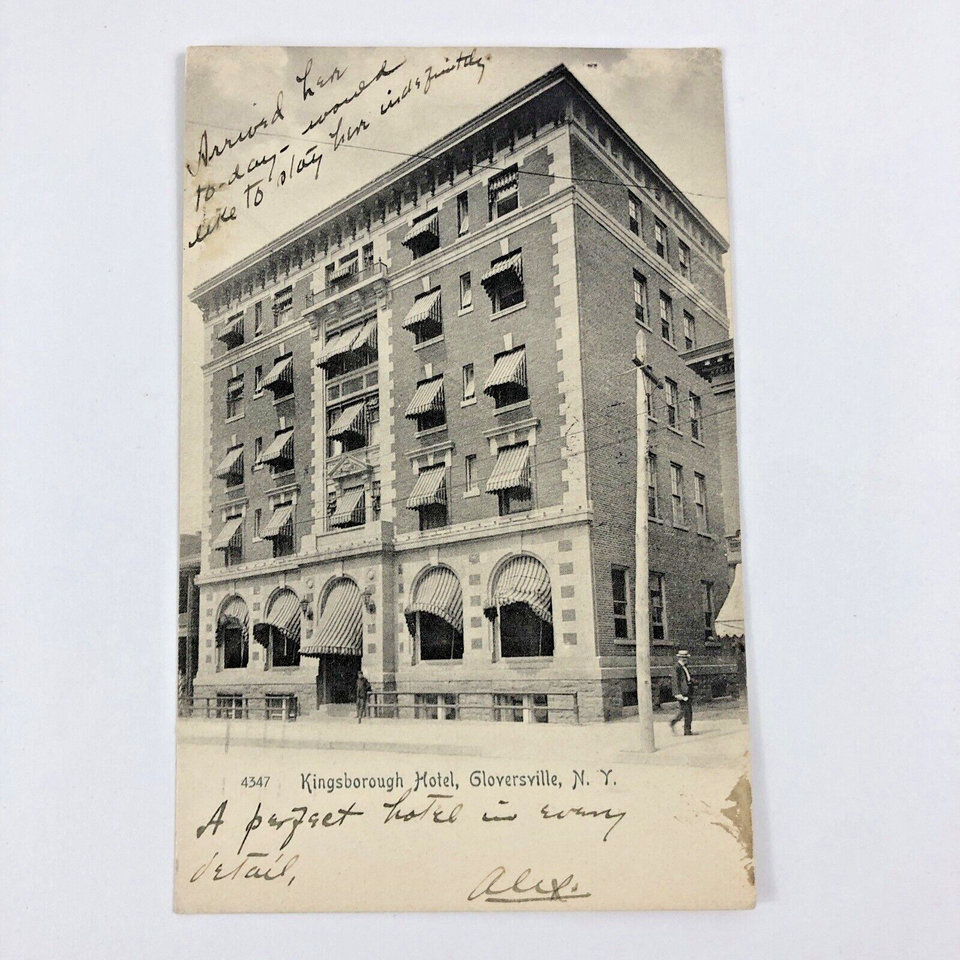 Arrived her
to-day - would
like to stay here indefinitly
4347 Kingsborough Hotel, Gloversville, N. Y.
A perfect hotel in every
detail,
Alex.